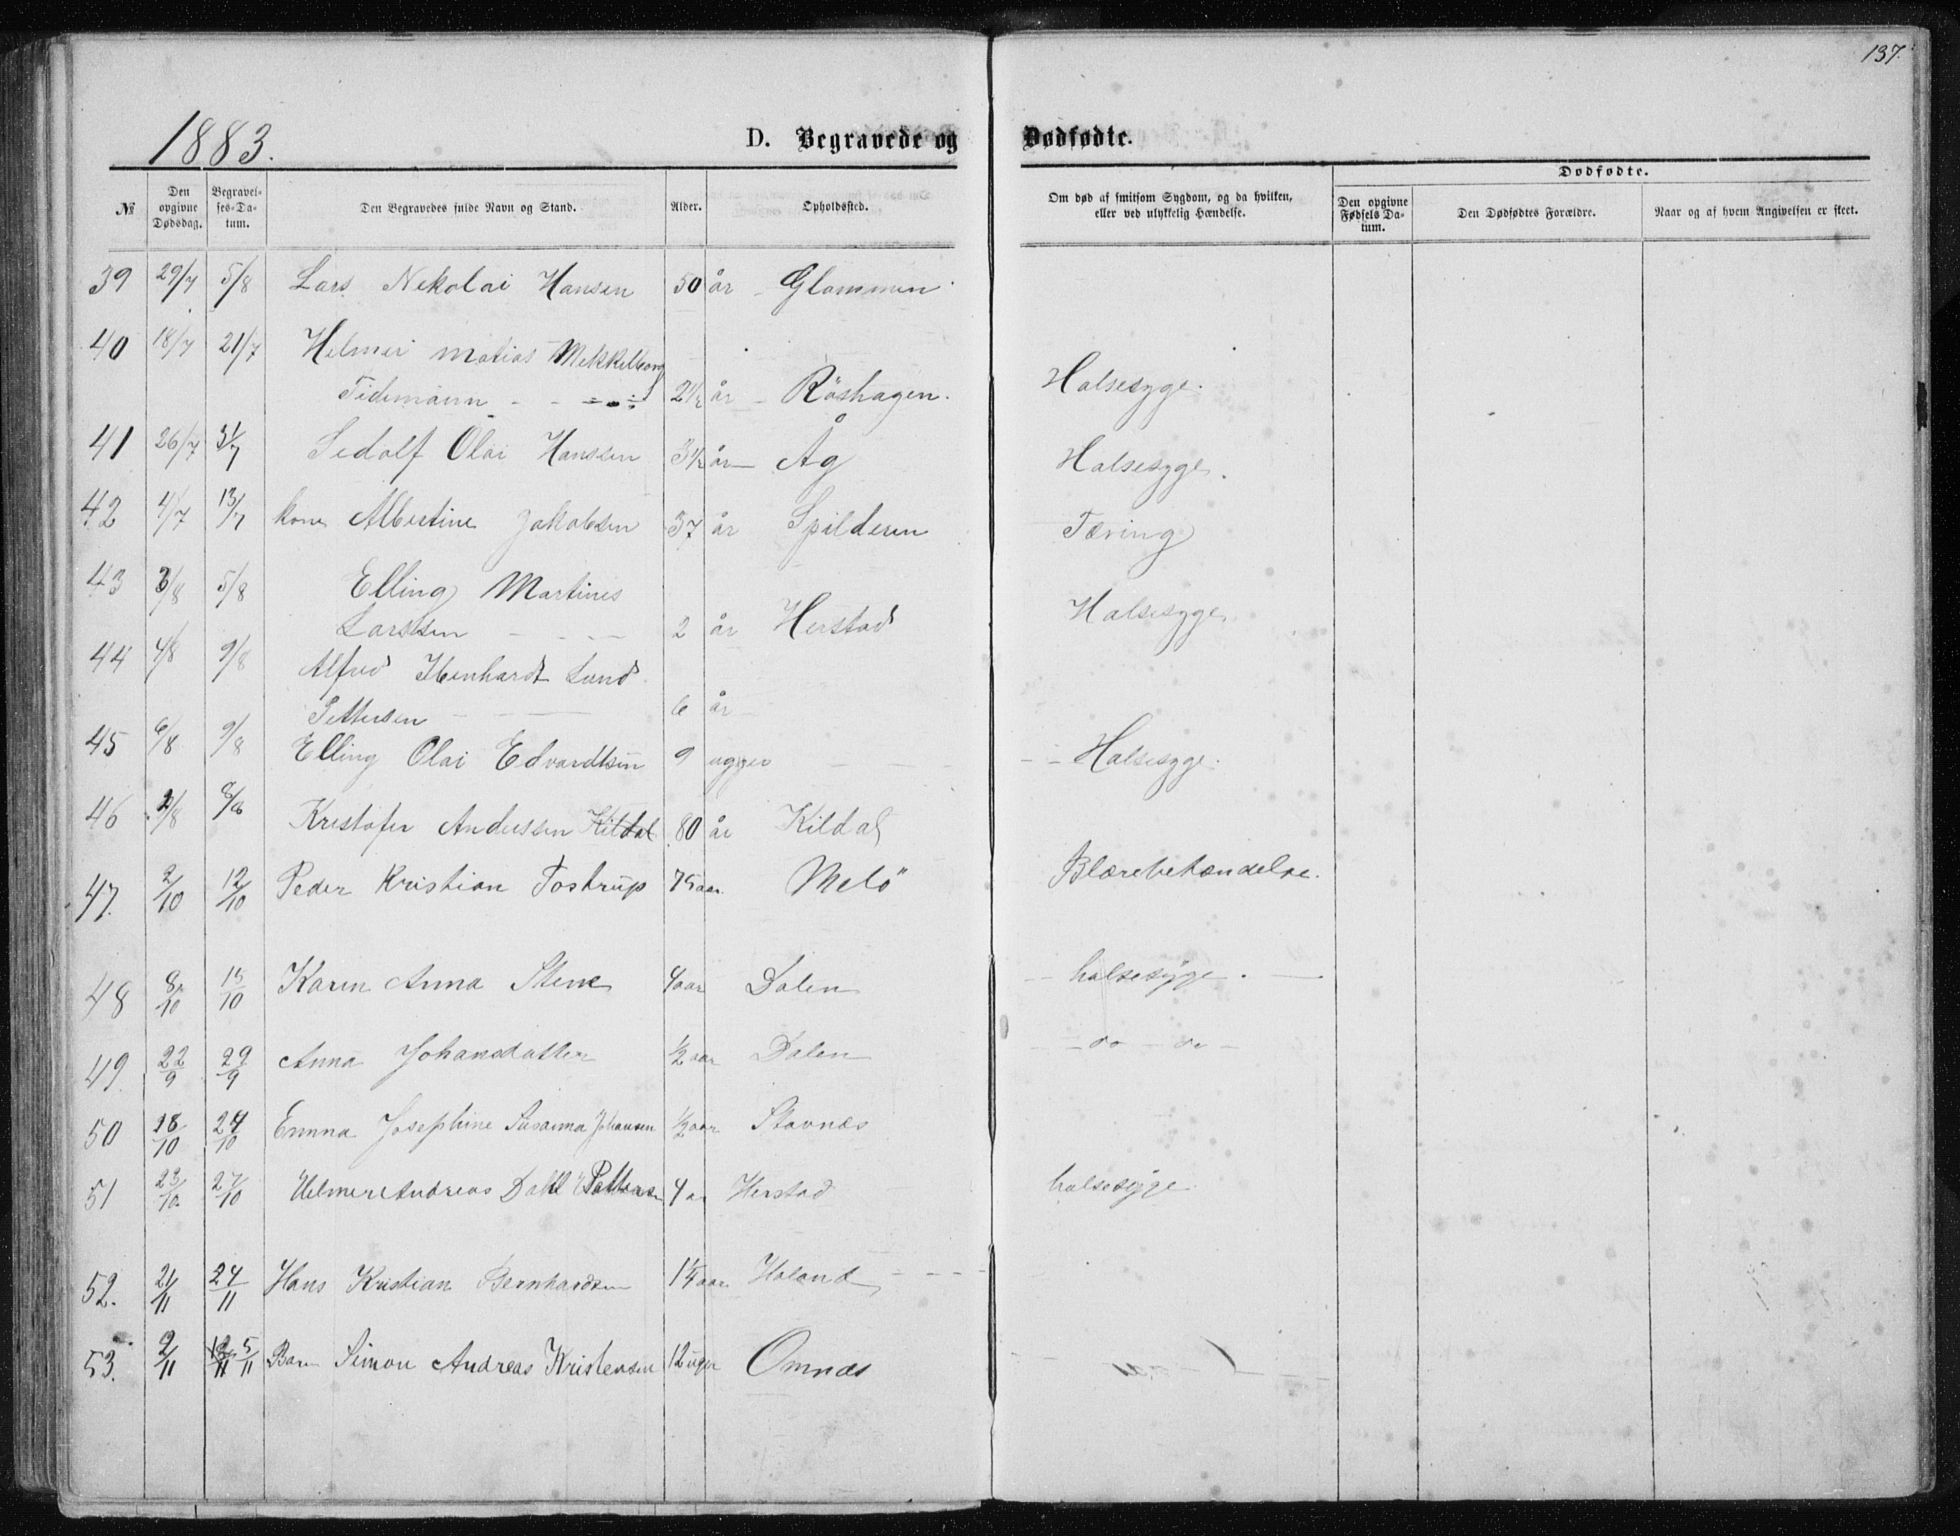 137.
1883.
D. Begravede og Dødfødte.
№ Den opgivne Dødsdag. Begravelses-Datum. Den Begravedes fulde Navn og Stand. Alder. Opholdssted. Om død af smitsom Sygdom, og da hvilken, eller ved ulykkelig Hændelse. Dødfødte. Den opgivne Fødsels Datum. Den Dødfødtes Forældre. Naar og af hvem Angivelsen er skeet.
39 29/7 5/8 Lars Nekolai Hansen 50 år Glommen
40 18/7 21/7 Helmer Matias Mekkelborg
Tidemann 2 1/2 år Röshagen. Halsesyge.
41 26/7 31/7 Sedolf Olai Hanssen 3 1/2 år Åg Halsesyge.
42 4/7 13/7 kone Albertine Jakobsen 37 år Spilderen Tæring
43 3/8 5/8 Elling Martines
Larssen 2 år Herstad Halsesyge
44 4/8 9/8 Alfred Ibenhardt Lund
Pettersen 6 år
45 6/8 9/8 Elling Olai Edvardtsen 9 ugger Halsesyge.
46 2/8 8/8 Kristofer Anderssen Kildal 80 år Kildal
47. 2/10 12/10 Peder Kristian Tostrup 75 aar. Melö Blærebetændelse.
48 8/10 15/10 Karen Anna Stene 4 aar Dalen halsesyge.
49. 22/9 29/9 Anna Johansdatter 1/2 aar Dalen do do
50 18/10 24/10 Emma Josephine Susanna Johansen 1/2 aar Stavnæs
51 23/10 27/10 Helmer Andreas Dahl Petters 4 aar Herstad halsesyge.
52. 21/11 24/11 Hans Kristian Bernhardsen 1 1/4 aar Haland
53. 2/11 5/11 Barn Simon Andreas Kristensen 12 uger Omnæs